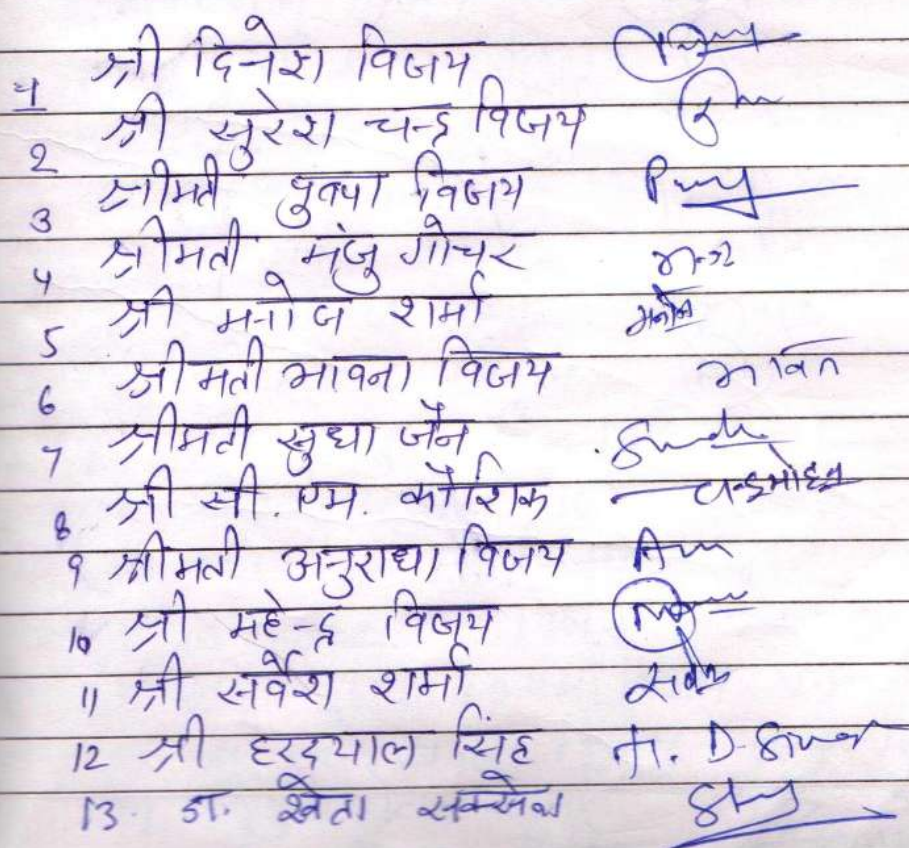 1 श्री दिनेश विजय
2 श्री सुरेश चन्द्र विजय
3 श्रीमती पुष्पा विजय Pu
4 श्रीमती मंजु गोचर मन्जु
5 श्री मनोज शर्मा मनोज
6 श्रीमती भावना विजय भावना
7 श्रीमती सुधा जैन Sudha
8 श्री सी. एम. कौशिक चन्द्रमोहन
9 श्रीमती अनुराधा विजय Anu
10 श्री महेन्द्र विजय
11 श्री सर्वेश शर्मा सर्वेश
12 श्री हरदयाल सिंह H. D. Singh
13. डा. श्वेता सक्सेना